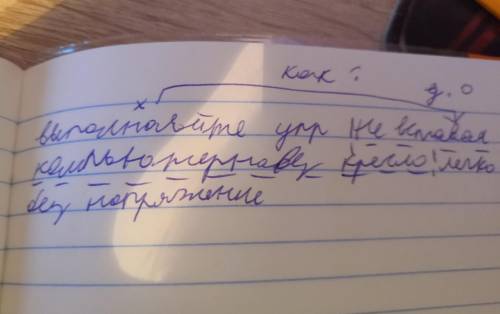 как?
д.о
х
выполняйте упр не вставая
компьютерного кресло, легко
без напряжение